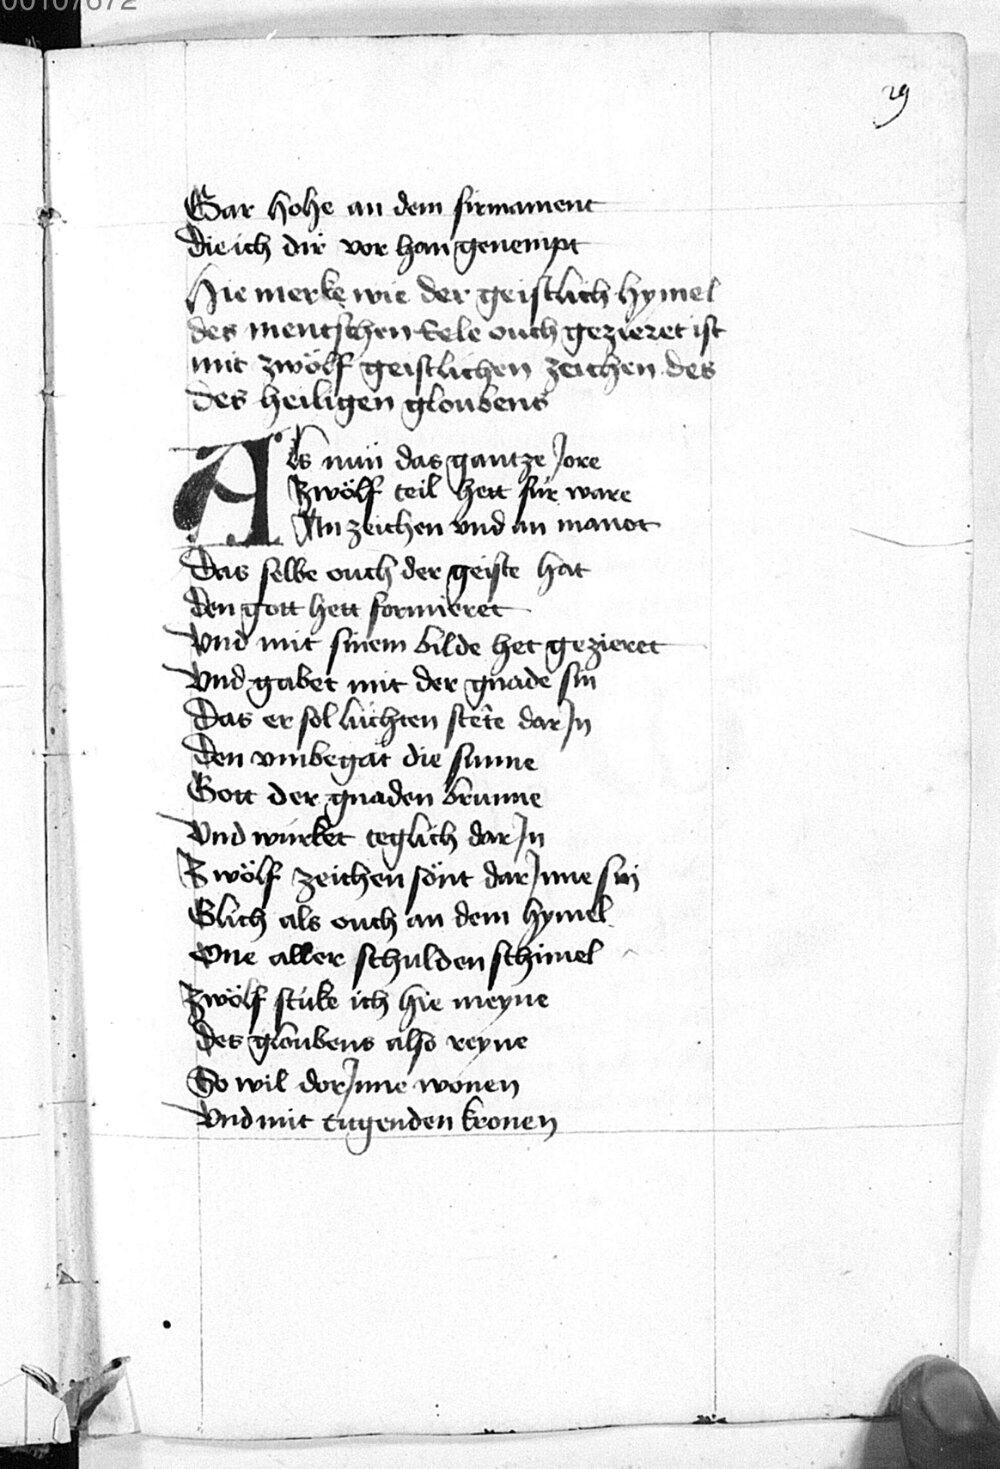 00107672
29
Gar hohe an dem firmament
Die ich dir vor han genempt
Hie merke wie der geistlich hymel
des mentschen Sele ouch gezieret ist
mit zwölf geistlichen zeichen des
des heiligen gloubens
Als nuͦn das gantze Jore
Zwölf teil hett für ware
An zeichen vnd an manot
Das selbe ouch der geiste hat
den gott hett formieret
Vnd mit sinem bilde het gezieret
Vnd gabet mit der gnade sin
Das er sol lüchten stete dar Jn
Den vmbegat die sunne
Gott der gnaden brunne
Vnd würket teglich dar Jn
Zwölf zeichen sönt dar Jnne sin
Glich als ouch an dem hymel
One aller schulden schimel
Zwölf stüke ich hie meyne
des gloubens also reyne
So wil dor Jnne wonen
Vnd mit tugenden kronen